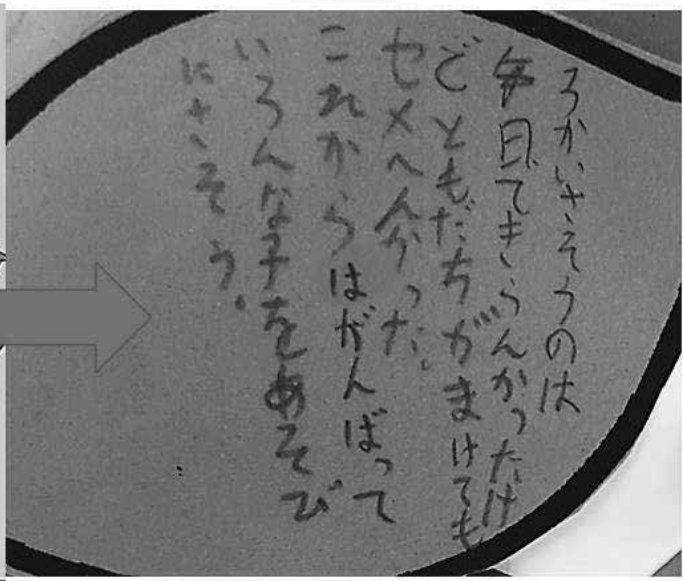 ろかいさそうのは
毎日できらんかったけ
どともだちがまけても
セメヘん介った。
これからはがんばって
いろんな子をあそび
にさそう。